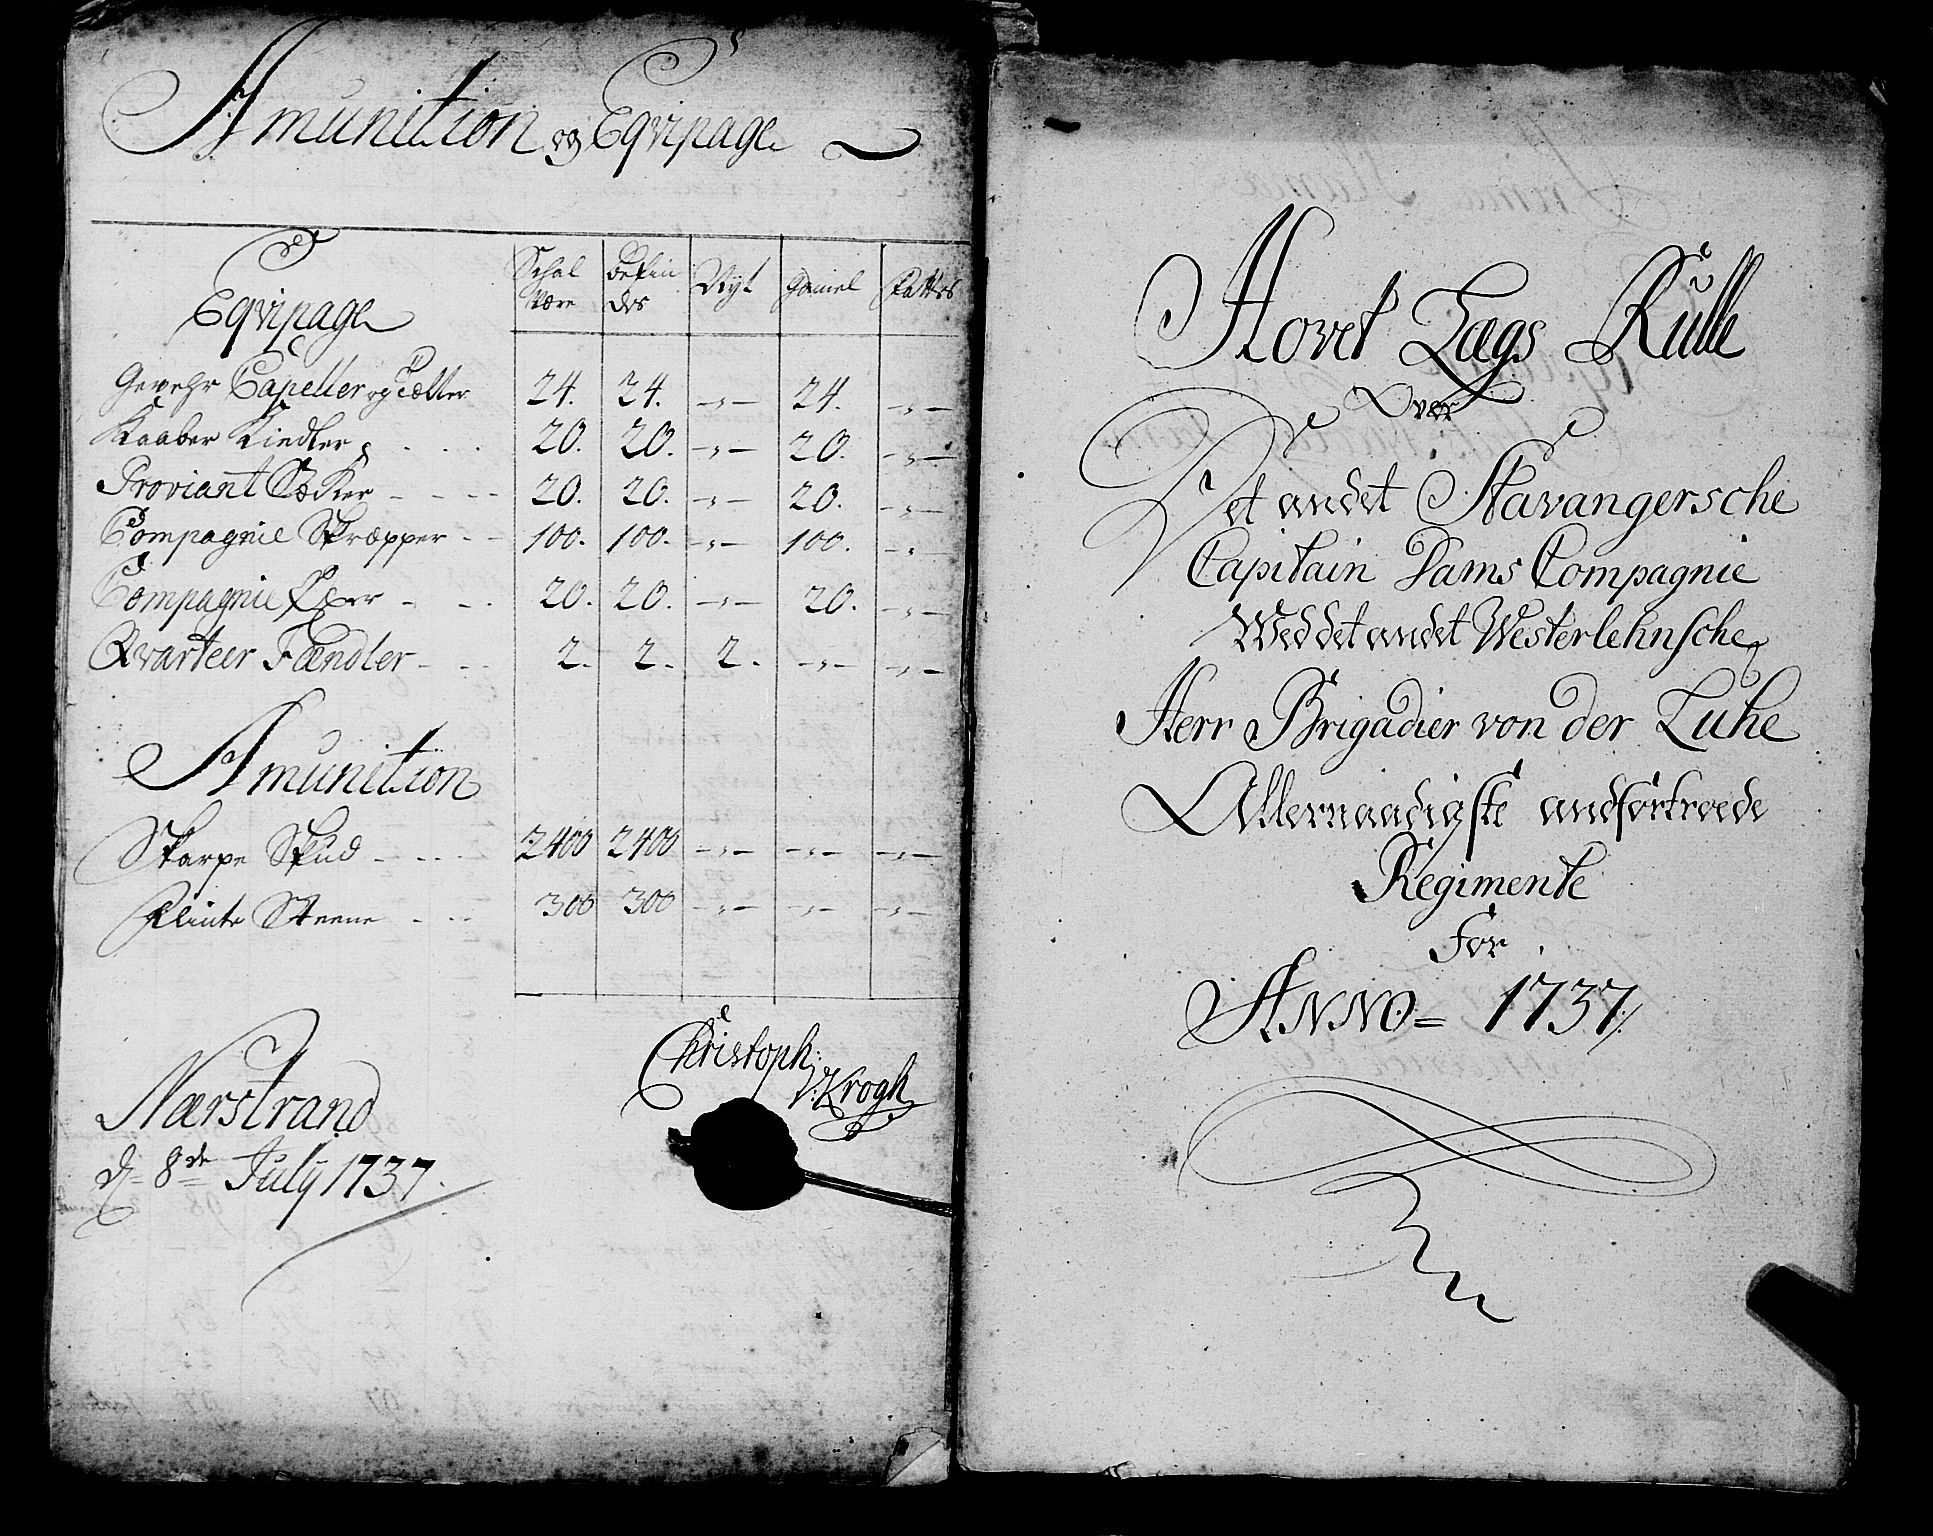 Amunition og Eqvipage
Eqvipage | Schal være | Befin des | Nyt | Gamel | Fattes
Gevehr Capeller og Tælter | 24. | 24. | -„- | 24. | -„-
Kaaber Kiedler | 20. | 20. | -„- | 20. | -„-
Proviant Sække | 20. | 20. | -„- | 20. | -„-
Compagnie Skræpper | 100. | 100. | -„- | 100. | -„-
Compagnie | 20. | 20. | -„- | 20. | -„-
Qvarteer Fændler | 2. | 2. | 2. | -„- | -„-
Amunition
Skarpe Skud | 2400 | 2400 | -„- | -„- | -„-
Flinte Steene | 300 | 300 | -„- | -„- | -„-
Nærstrand
d= 8de July 1737.
Christoph:
V: Krogh
Hovet Lægs Rulle
Over
Det andet Stavangersche
Capitain Dams Compagnie
Wed det andet Westerlehnsche
Herr Brigadier von der Luhe
Allernaadigste andfortroede
Regimente
For
ANNO= 1737/